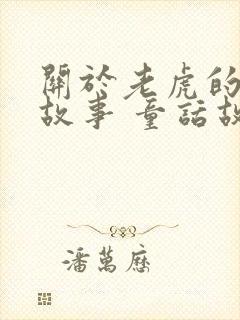 關於老虎的
故事 童話故
潘萬歷